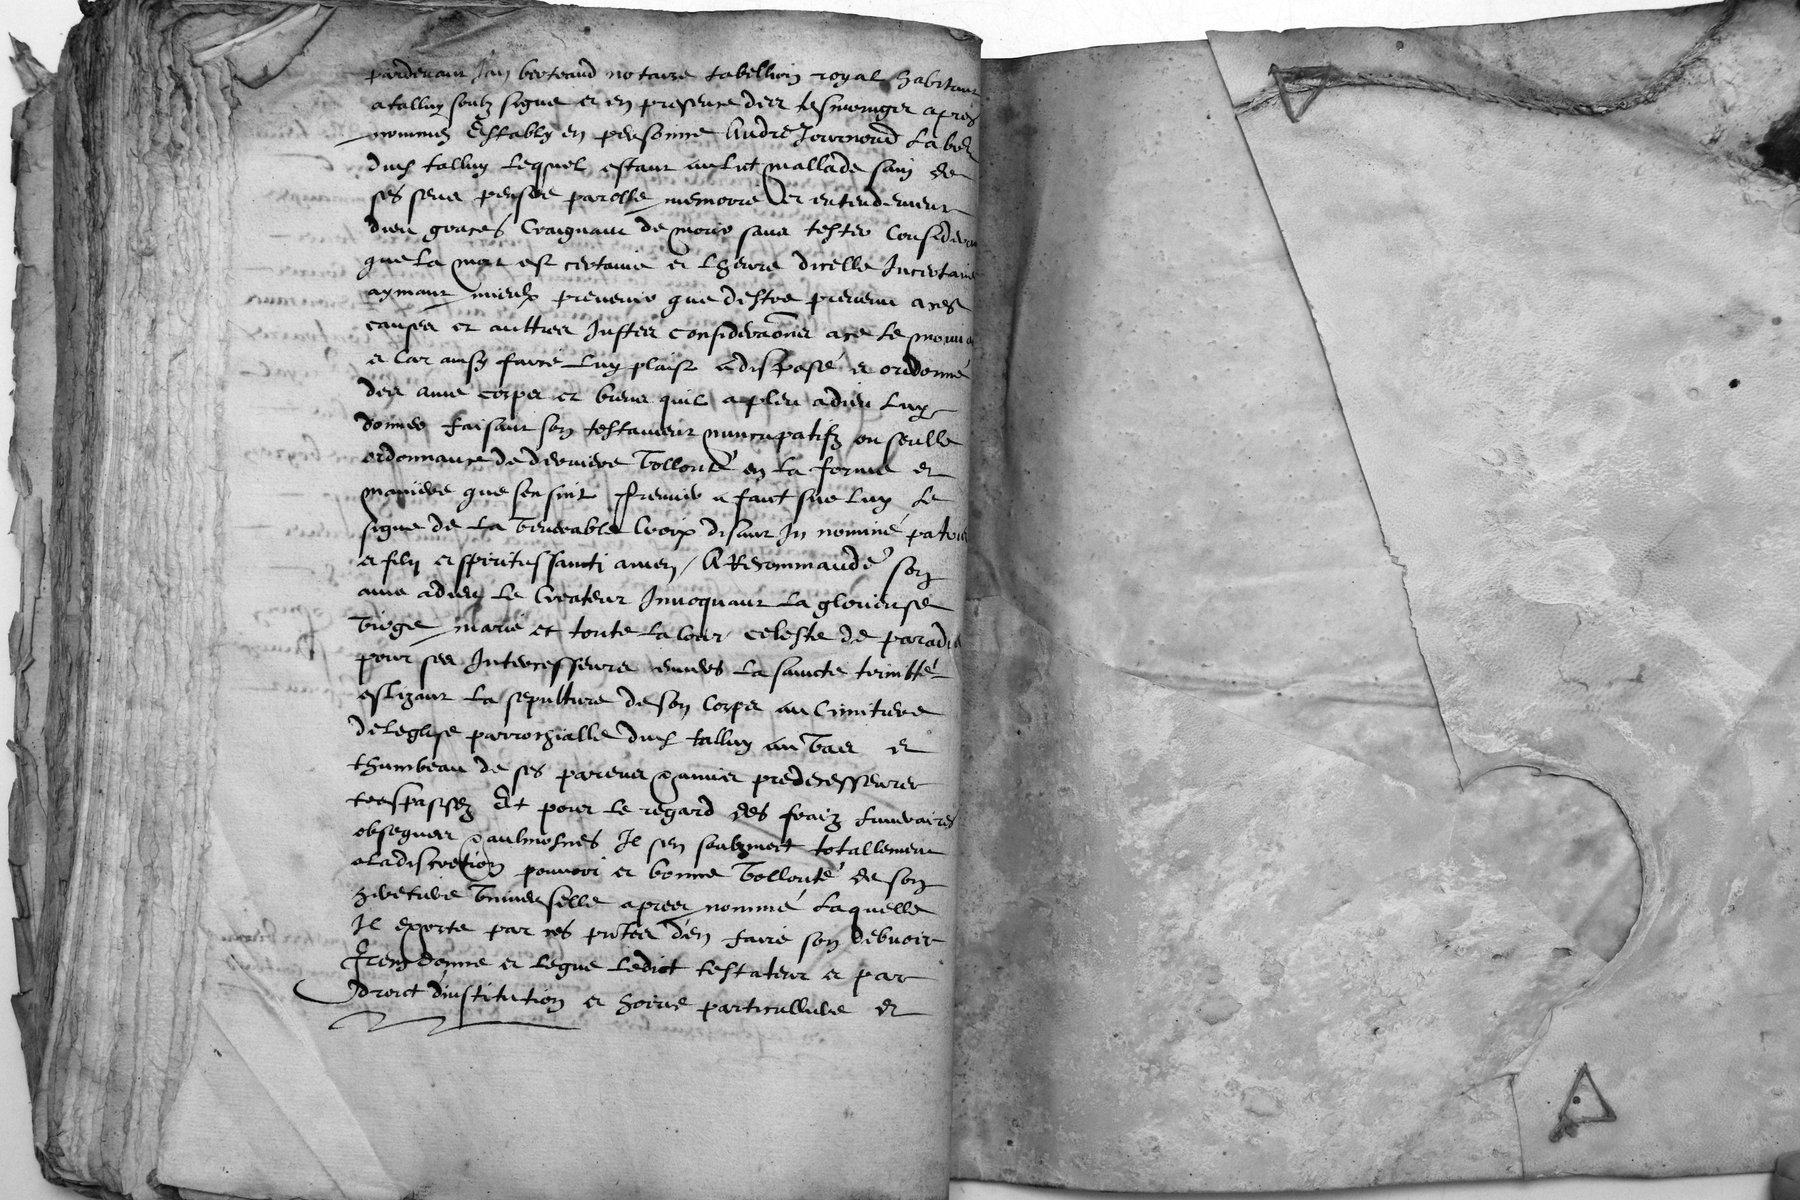 pardevant Jan bertraud notaire tabellion royal habitant
a talluy soubz signe et en presence des tesmoingtz apres
nommez Estably en personne André Journoud labor
dud talluy lequel estant au lict mallade sain de
ses sens pensee parolle memoire et entendement
dieu graces Craignant de morir sans tester Considerant
que la mort est certaine et lheure dicelle Incertaine
aymant mieulx prevenir que destre prevenu a ces
causes et aultres Justes considera͠ons a ce le mouva
et car ainsy faire luy plaist a disposé et ordonné
des ame corps et biens quil a pleu a dieu luy
donner faisant son testament nuncupatifz ou seulle
ordonnance de derniere vollonté en la forme et
maniere que sensuit Premier a faict sur luy le
signe de la venerable Croix disant In nominé patris
et filij et spiritus sancti amen / A Recommandé son
ame a dieu le Createur Invoquant la glorieuse
vierge marie et toute la Cour celeste de paradis
pour ses Intercesseurs envers la saincte trinitté
eslizant la sepulture de son Corps au Cimitiere
de leglise parrochialle dud talluy au vas et
thumbeau de ses parens & amier predecesseurs
trespassez Et pour le regard des fraiz funeraires
obseques & aulmosnes Il sen soubzmect totallement
a la discretion pouvoir et bonne vollonté de son
heretiere universelle apres nommé laquelle
Il exorte par ces p͠ntes den faire son debvoir
Item donne et legue ledict testateur et par
droict dinstitution et hoirie particulliere et